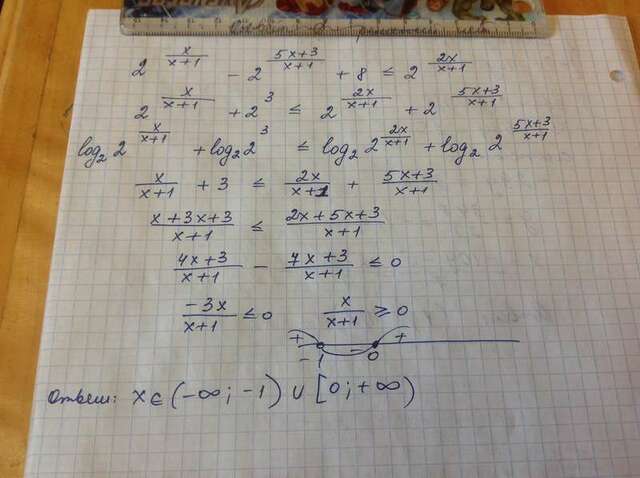 2^(x/(x+1)) - 2^((5x+3)/(x+1)) + 8 ≤ 2^(2x/(x+1))
2^(x/(x+1)) + 2^3 ≤ 2^(2x/(x+1)) + 2^((5x+3)/(x+1))
log₂ 2^(x/(x+1)) + log₂ 2^3 ≤ log₂ 2^(2x/(x+1)) + log₂ 2^((5x+3)/(x+1))
x/(x+1) + 3 ≤ 2x/(x+1) + (5x+3)/(x+1)
(x+3x+3)/(x+1) ≤ (2x+5x+3)/(x+1)
(4x+3)/(x+1) - (7x+3)/(x+1) ≤ 0
(-3x)/(x+1) ≤ 0 x/(x+1) ≥ 0
+ - +
-1 0
Ответ: x ∈ (-∞; -1) ∪ [0; +∞)